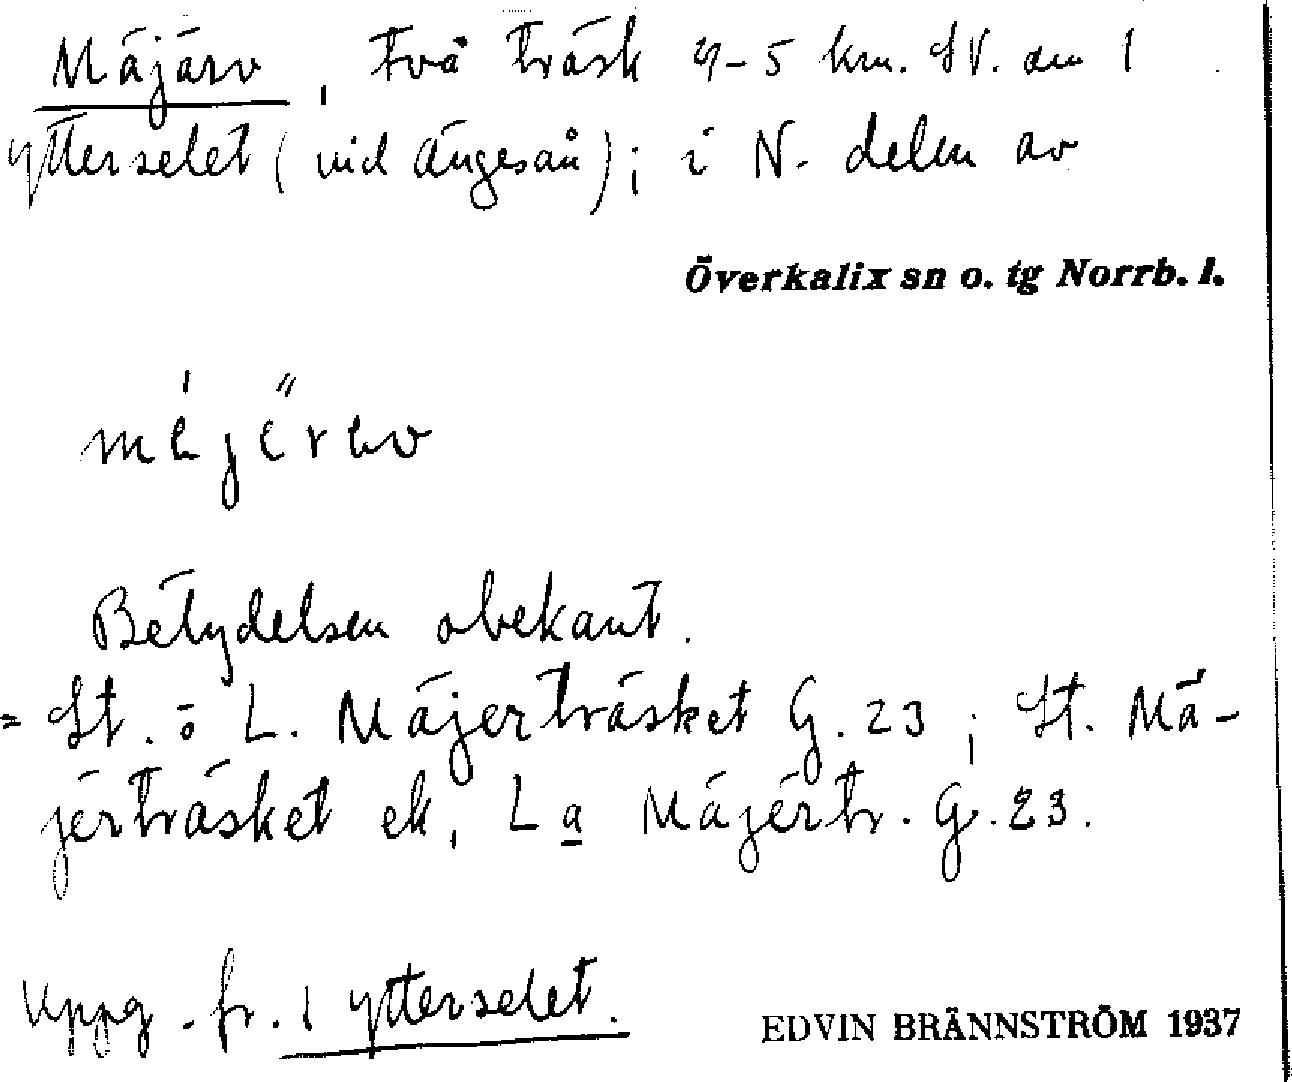 Mäjärv, två träsk 4-5 km. SV. om 1
ytterselet (vid Ängesån); i N. delen av
Överkalix sn o. tg Norrb. l.
Betydelsen obekant.
= St. o L. Mäjerträsket G. 23; St. Mä-
jerträsket ek, La Mäjertr. G. 23.
Uppg. fr. 1 ytterselet.
EDVIN BRÄNNSTRÖM 1937